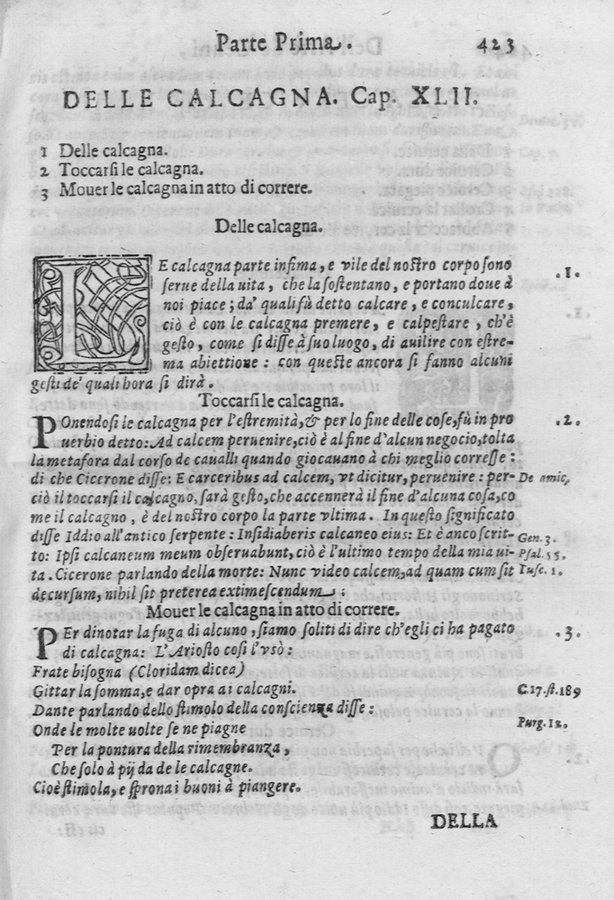 Parte Prima. 423
DELLE CALCAGNA. Cap. XLII.
1 Delle calcagna.
2 Toccarsi le calcagna.
3 Mouer le calcagna in atto di correre.
Delle calcagna.
LE calcagna parte infima, e vile del nostro corpo sono .1.
serue della uita, che la sostentano, e portano doue à
noi piace; da' quali fù detto calcare, e conculcare,
ciò è con le calcagna premere, e calpestare, ch'è
gesto, come si disse à suo luogo, di auilire con estre-
ma abiettione: con queste ancora si fanno alcuni
gesti de' quali hora si dirà.
Toccarsi le calcagna.
POnendosi le calcagna per l'estremità, & per lo fine delle cose, fù in pro .2.
uerbio detto: Ad calcem peruenire, ciò è al fine d'alcun negocio, tolta
la metafora dal corso de caualli quando giocauano à chi meglio corresse:
di che Cicerone disse: E carceribus ad calcem, vt dicitur, peruenire: per- De amic,
ciò il toccarsi il calcagno, sarà gesto, che accennerà il fine d'alcuna cosa, co
me il calcagno, è del nostro corpo la parte vltima. In questo significato
disse Iddio all'antico serpente: Insidiaberis calcaneo eius: Et è anco scrit- Gen. 3.
to: Ipsi calcaneum meum obseruabunt, ciò è l'ultimo tempo della mia ui- Psal. 55.
ta. Cicerone parlando della morte: Nunc video calcem, ad quam cum sit Tusc. 1.
decursum, nihil sit preterea extimescendum:
Mouer le calcagna in atto di correre.
PEr dinotar la fuga di alcuno, siamo soliti di dire ch'egli ci ha pagato .3.
di calcagna: L'Ariosto così l'vsò:
Frate bisogna (Cloridam dicea)
Gittar la somma, e dar opra ai calcagni. C. 17. st. 189
Dante parlando dello stimolo della conscienza disse:
Onde le molte uolte se ne piagne Purg. 12.
Per la pontura della rimembranza,
Che solo à pij da de le calcagne.
Cioè stimola, e sprona i buoni à piangere.
DELLA